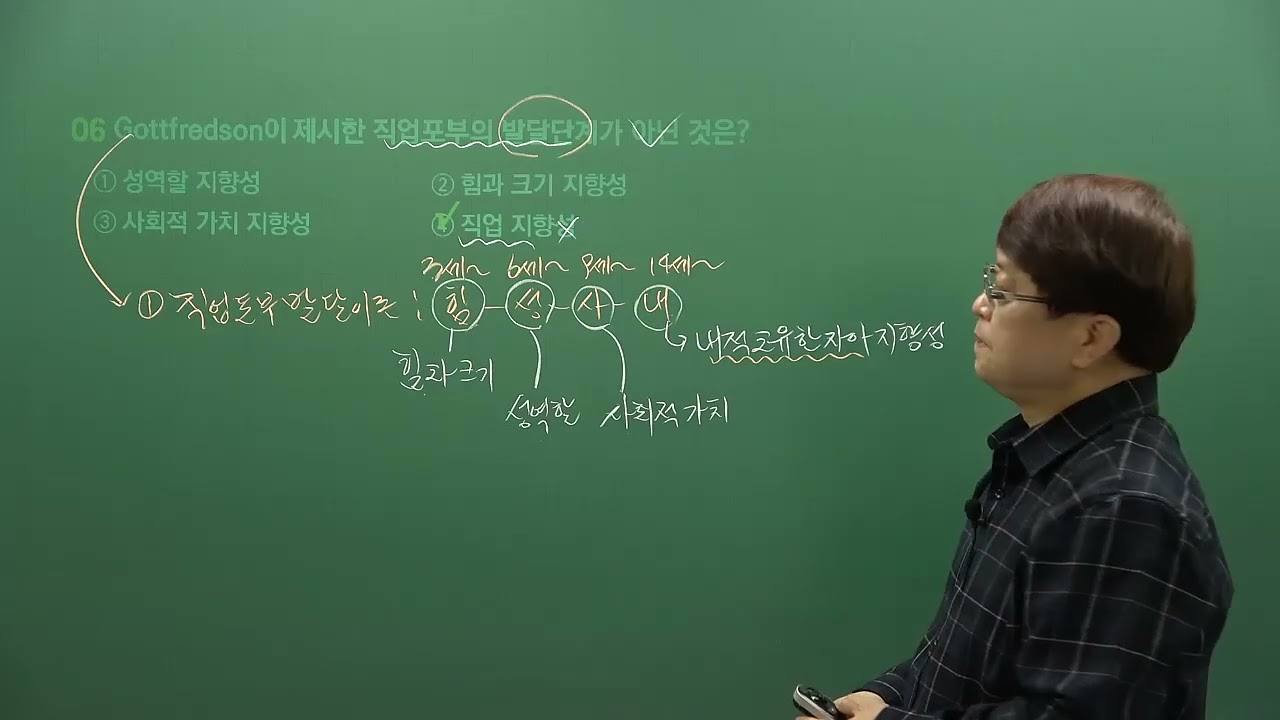 06 Gottfredson이 제시한 직업포부의 발달단계가 아닌 것은?
① 성역할 지향성 ② 힘과 크기 지향성
③ 사회적 가치 지향성 ④ 직업 지향성
3세~ 6세~ 9세~ 14세~
① 직업포부 발달이론 : 힘 - 성 - 사 - 내
내적고유한자아 지향성
힘과 크기
성역할 사회적 가치